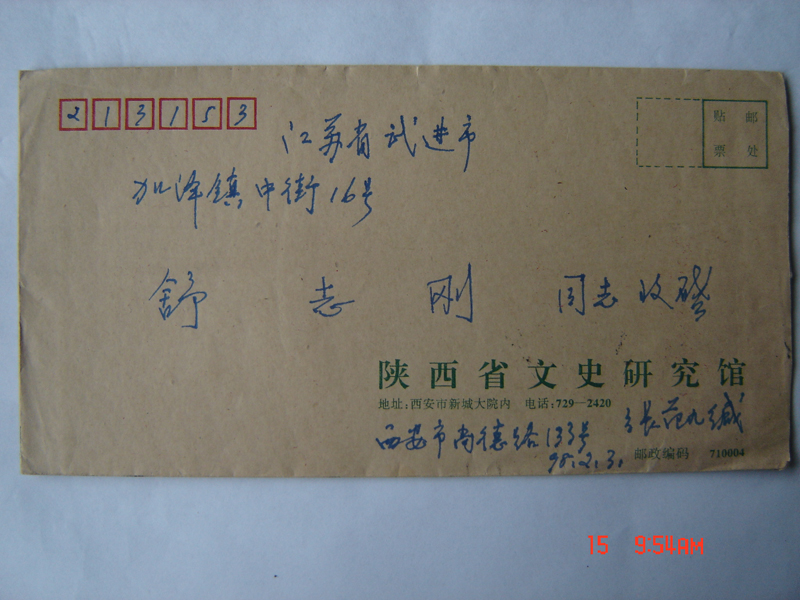 213153
江苏省武进市
加泽镇中街16号
贴 邮
票 处
舒志刚 同志收启
陕西省文史研究馆
地址:西安市新城大院内 电话:729—2420
西安市尚德路133号 张范九缄
98.2.3.
邮政编码 710004
15 9:54AM